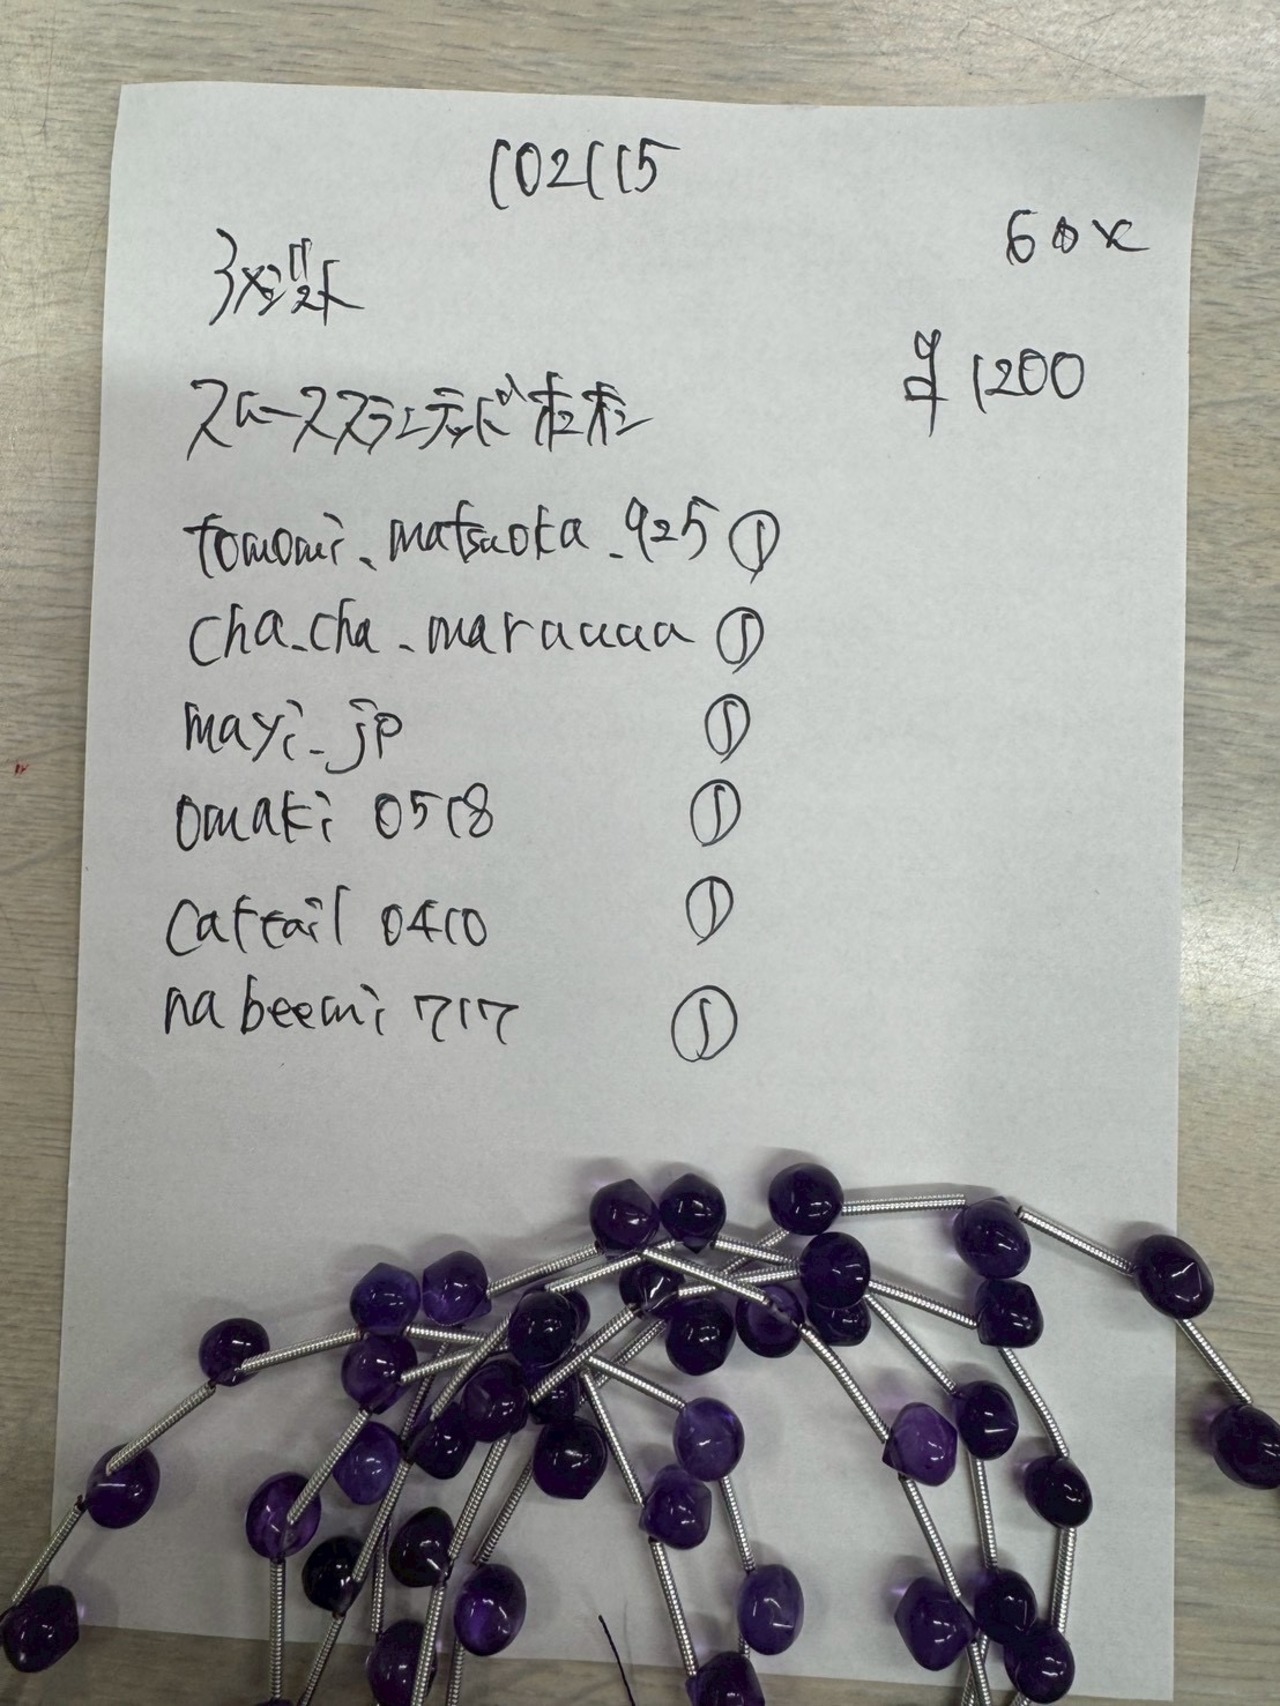 1021115
60x
アメジスト
¥1200
スムーススランテッドオニオン
tomomi_matsuoka_925 ①
cha_cha_maruuuu ①
mayi_jp ①
omaki 0518 ①
cattail 0410 ①
nabeemi 717 ①